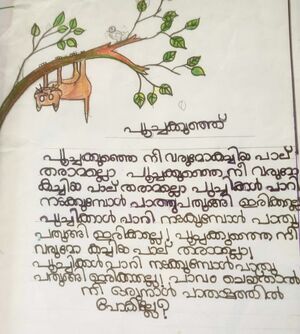 പൂച്ചക്കുഞ്ഞ്
പൂച്ചക്കുഞ്ഞെ നീ വരുമോ കുച്ചിയ പാല്
തരാമല്ലാ പൂച്ചക്കുഞ്ഞെ, നീ വരുമോ
കച്ചിയ പാല് തരാമല്ലാ പൂച്ചിക്കൾ പാറി
നടക്കുമ്പോൾ പാത്തുപതുങ്ങി ഇരിക്കല്ലെ
പൂച്ചിക്കാൾ പാറി നടക്കുമ്പോൾ പാത്തു
പതുങ്ങി ഇരിക്കല്ലെ, പൂച്ചക്കുഞ്ഞെ നീ
വരുമോ കച്ചിയ പാല് തരാമല്ലാ
പൂച്ചിക്കൾ പാറി നടക്കുമ്പോൾ പാത്തു
പതുങ്ങി ഇരിക്കല്ലെ, പാവം ചെയ്താൽ
നീ ഒരുനാൾ പാതാളത്തിൽ
പോകില്ലെ?